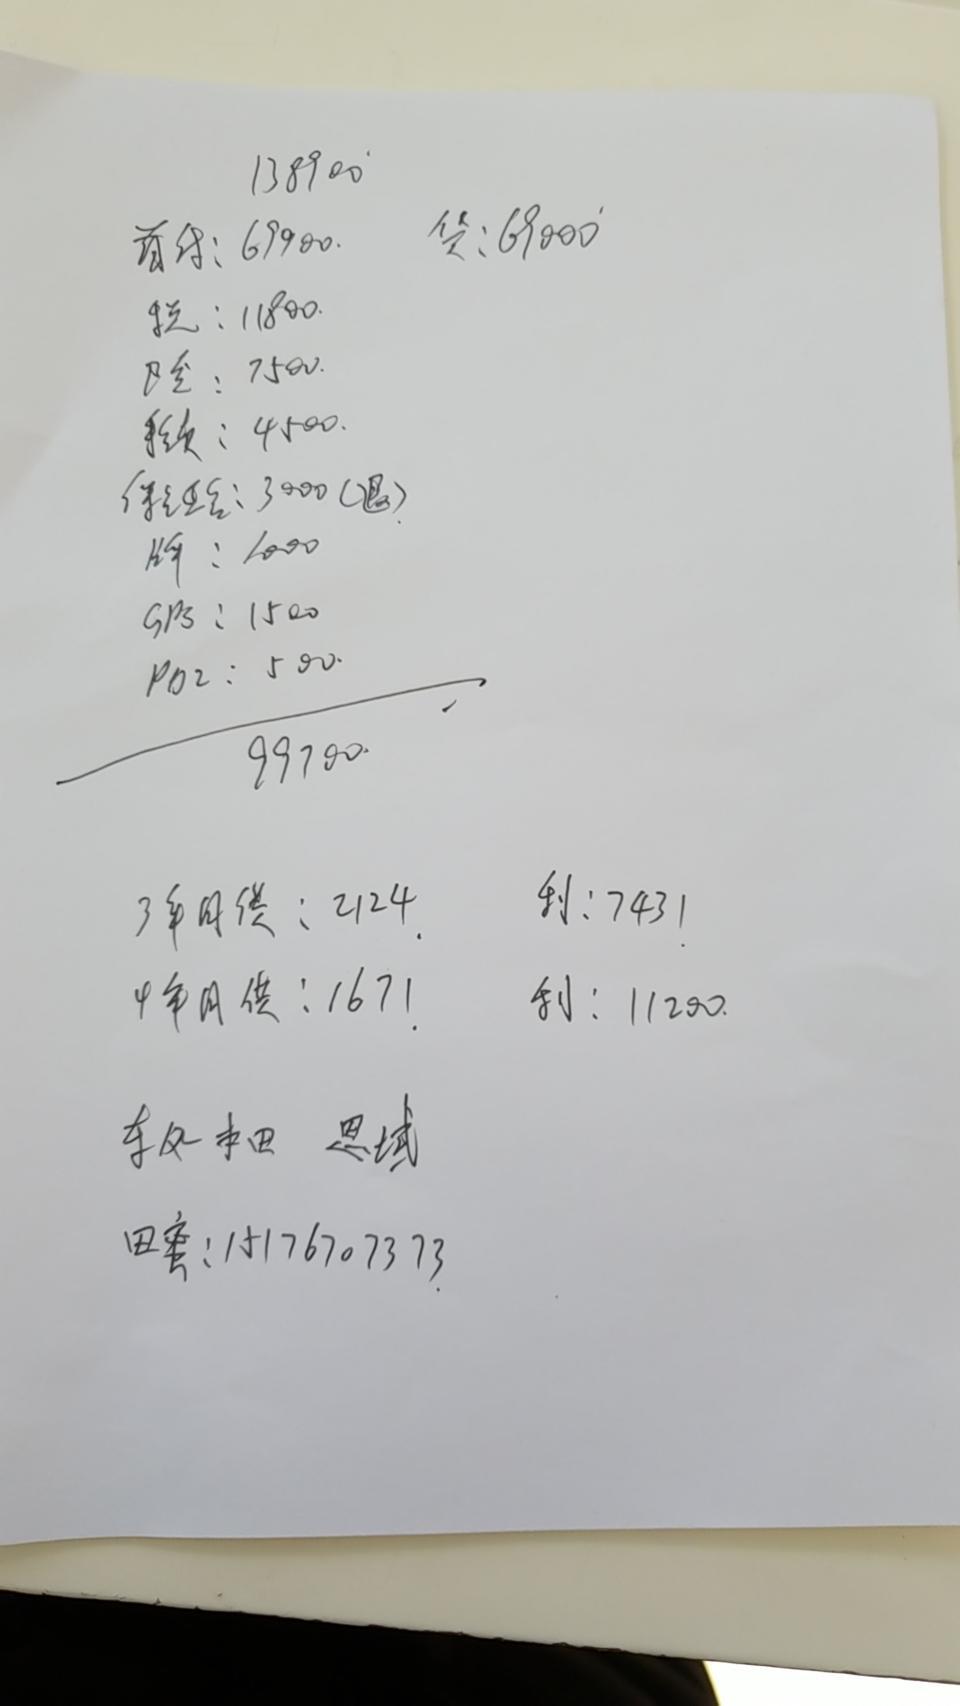 138900
首付：69900. 贷：69000
税：11800.
保险：7500.
手续：4500.
保证金：3000（退）
牌：1000
GPS：1500
PDI：500.
99700.
3年月供：2124. 利：7431
4年月供：1671 利：11200.
东风本田 思域
田蜜：15176707373